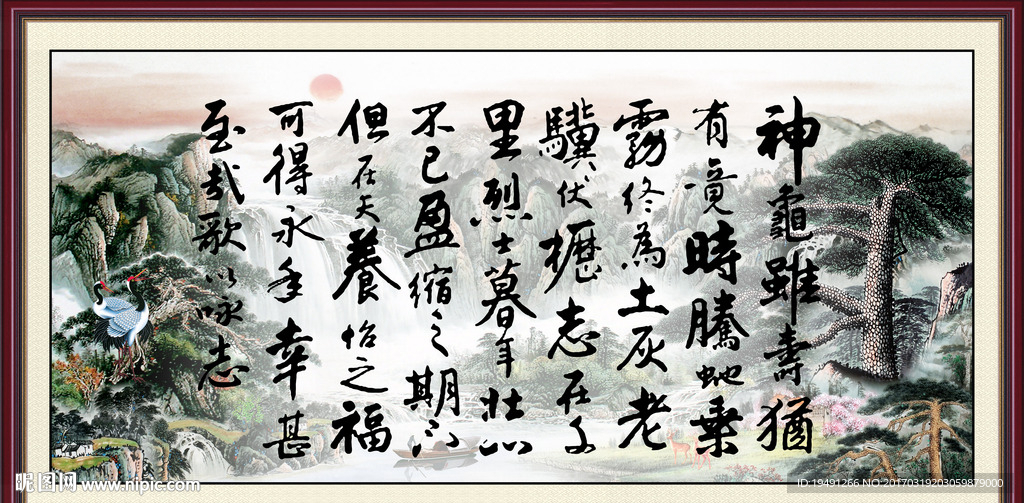 神龜雖壽猶
有竟時騰虵乗
霧终為土灰老
驥伏櫪志在千
里烈士暮年壮心
不已盈缩之期不
但在天養怡之福
可得永年幸甚
至哉歌以咏志
昵图网 www.nipic.com
ID:19491266 NO:20170319203059879000